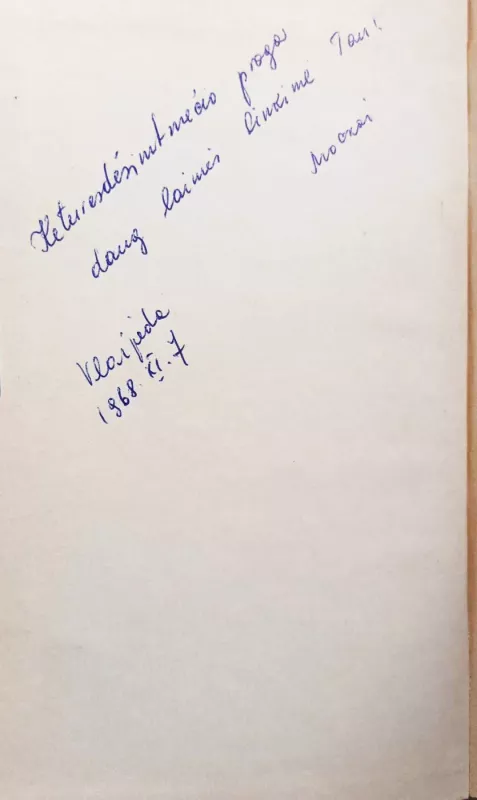 Keturesdešimtmečio proga
daug laimės linkime Tau!
Mockai
Klaipėda
1968.XI.7